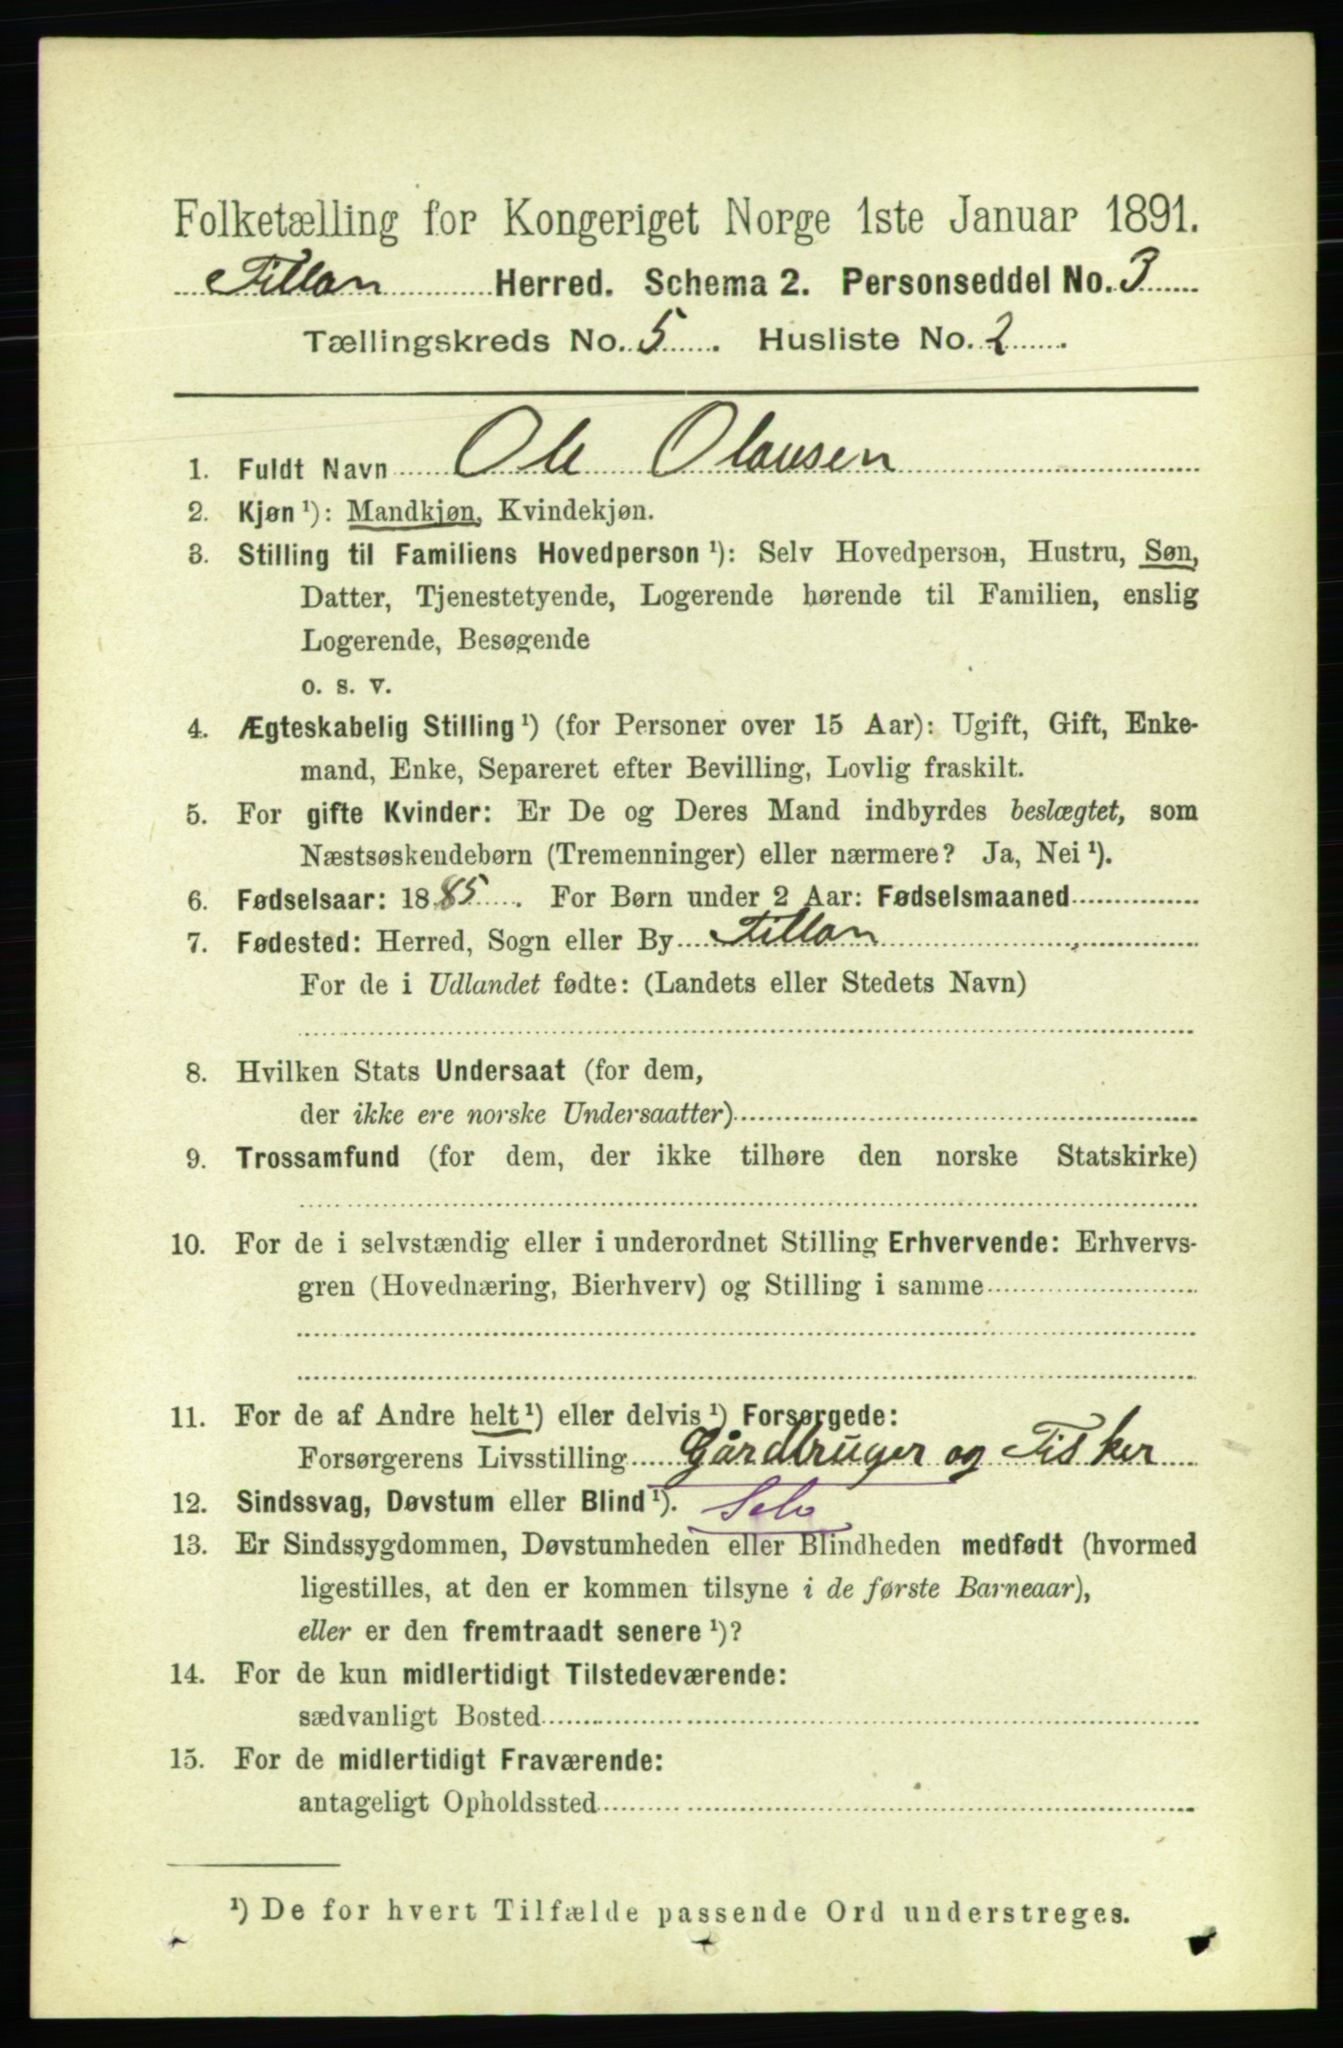 Folketælling for Kongeriget Norge 1ste Januar 1891.
Fillan Herred. Schema 2. Personseddel No. 3
Tællingskreds No. 5. Husliste No. 2.
1. Fuldt Navn Ole Olausen
2. Kjøn ¹): Mandkjøn, Kvindekjøn.
3. Stilling til Familiens Hovedperson ¹): Selv Hovedperson, Hustru, Søn,
Datter, Tjenestetyende, Logerende hørende til Familien, enslig
Logerende, Besøgende
o. s. v.
4. Ægteskabelig Stilling ¹) (for Personer over 15 Aar): Ugift, Gift, Enke-
mand, Enke, Separeret efter Bevilling, Lovlig fraskilt.
5. For gifte Kvinder: Er De og Deres Mand indbyrdes beslægtet, som
Næstsøskendebørn (Tremenninger) eller nærmere? Ja, Nei ¹).
6. Fødselsaar: 1885. For Børn under 2 Aar: Fødselsmaaned
7. Fødested: Herred, Sogn eller By Fillan
For de i Udlandet fødte: (Landets eller Stedets Navn)
8. Hvilken Stats Undersaat (for dem,
der ikke ere norske Undersaatter)
9. Trossamfund (for dem, der ikke tilhøre den norske Statskirke)
10. For de i selvstændig eller i underordnet Stilling Erhvervende: Erhvervs-
gren (Hovednæring, Bierhverv) og Stilling i samme
11. For de af Andre helt ¹) eller delvis ¹) Forsørgede:
Forsørgerens Livsstilling Gårdbruger og Fisker
12. Sindssvag, Døvstum eller Blind ¹). Selv
13. Er Sindssygdommen, Døvstumheden eller Blindheden medfødt (hvormed
ligestilles, at den er kommen tilsyne i de første Barneaar),
eller er den fremtraadt senere ¹)?
14. For de kun midlertidigt Tilstedeværende:
sædvanligt Bosted
15. For de midlertidigt Fraværende:
antageligt Opholdssted
¹) De for hvert Tilfælde passende Ord understreges.